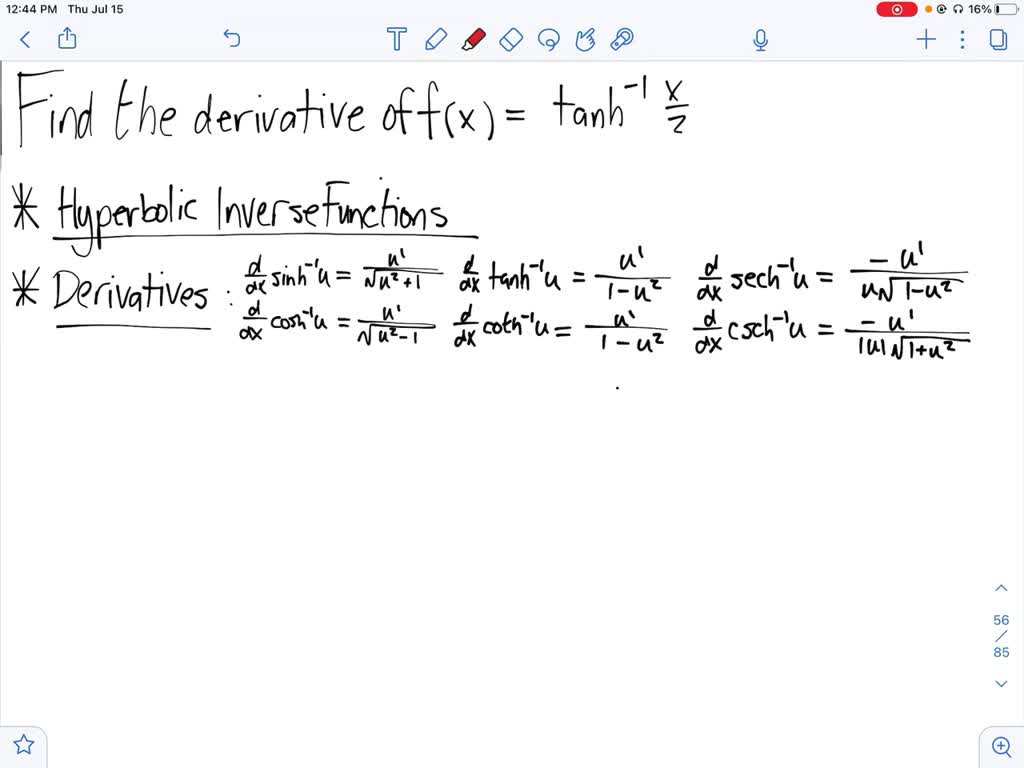 12:44 PM Thu Jul 15 16%
T
Find the derivative of f(x) = tanh⁻¹ x/2
* Hyperbolic Inverse Functions
* Derivatives : d/dx sinh⁻¹u = u'/√(u²+1) d/dx tanh⁻¹u = u'/(1-u²) d/dx sech⁻¹u = -u'/(u√(1-u²))
d/dx cosh⁻¹u = u'/√(u²-1) d/dx coth⁻¹u = u'/(1-u²) d/dx csch⁻¹u = -u'/(|u|√(1+u²))
56
/
85